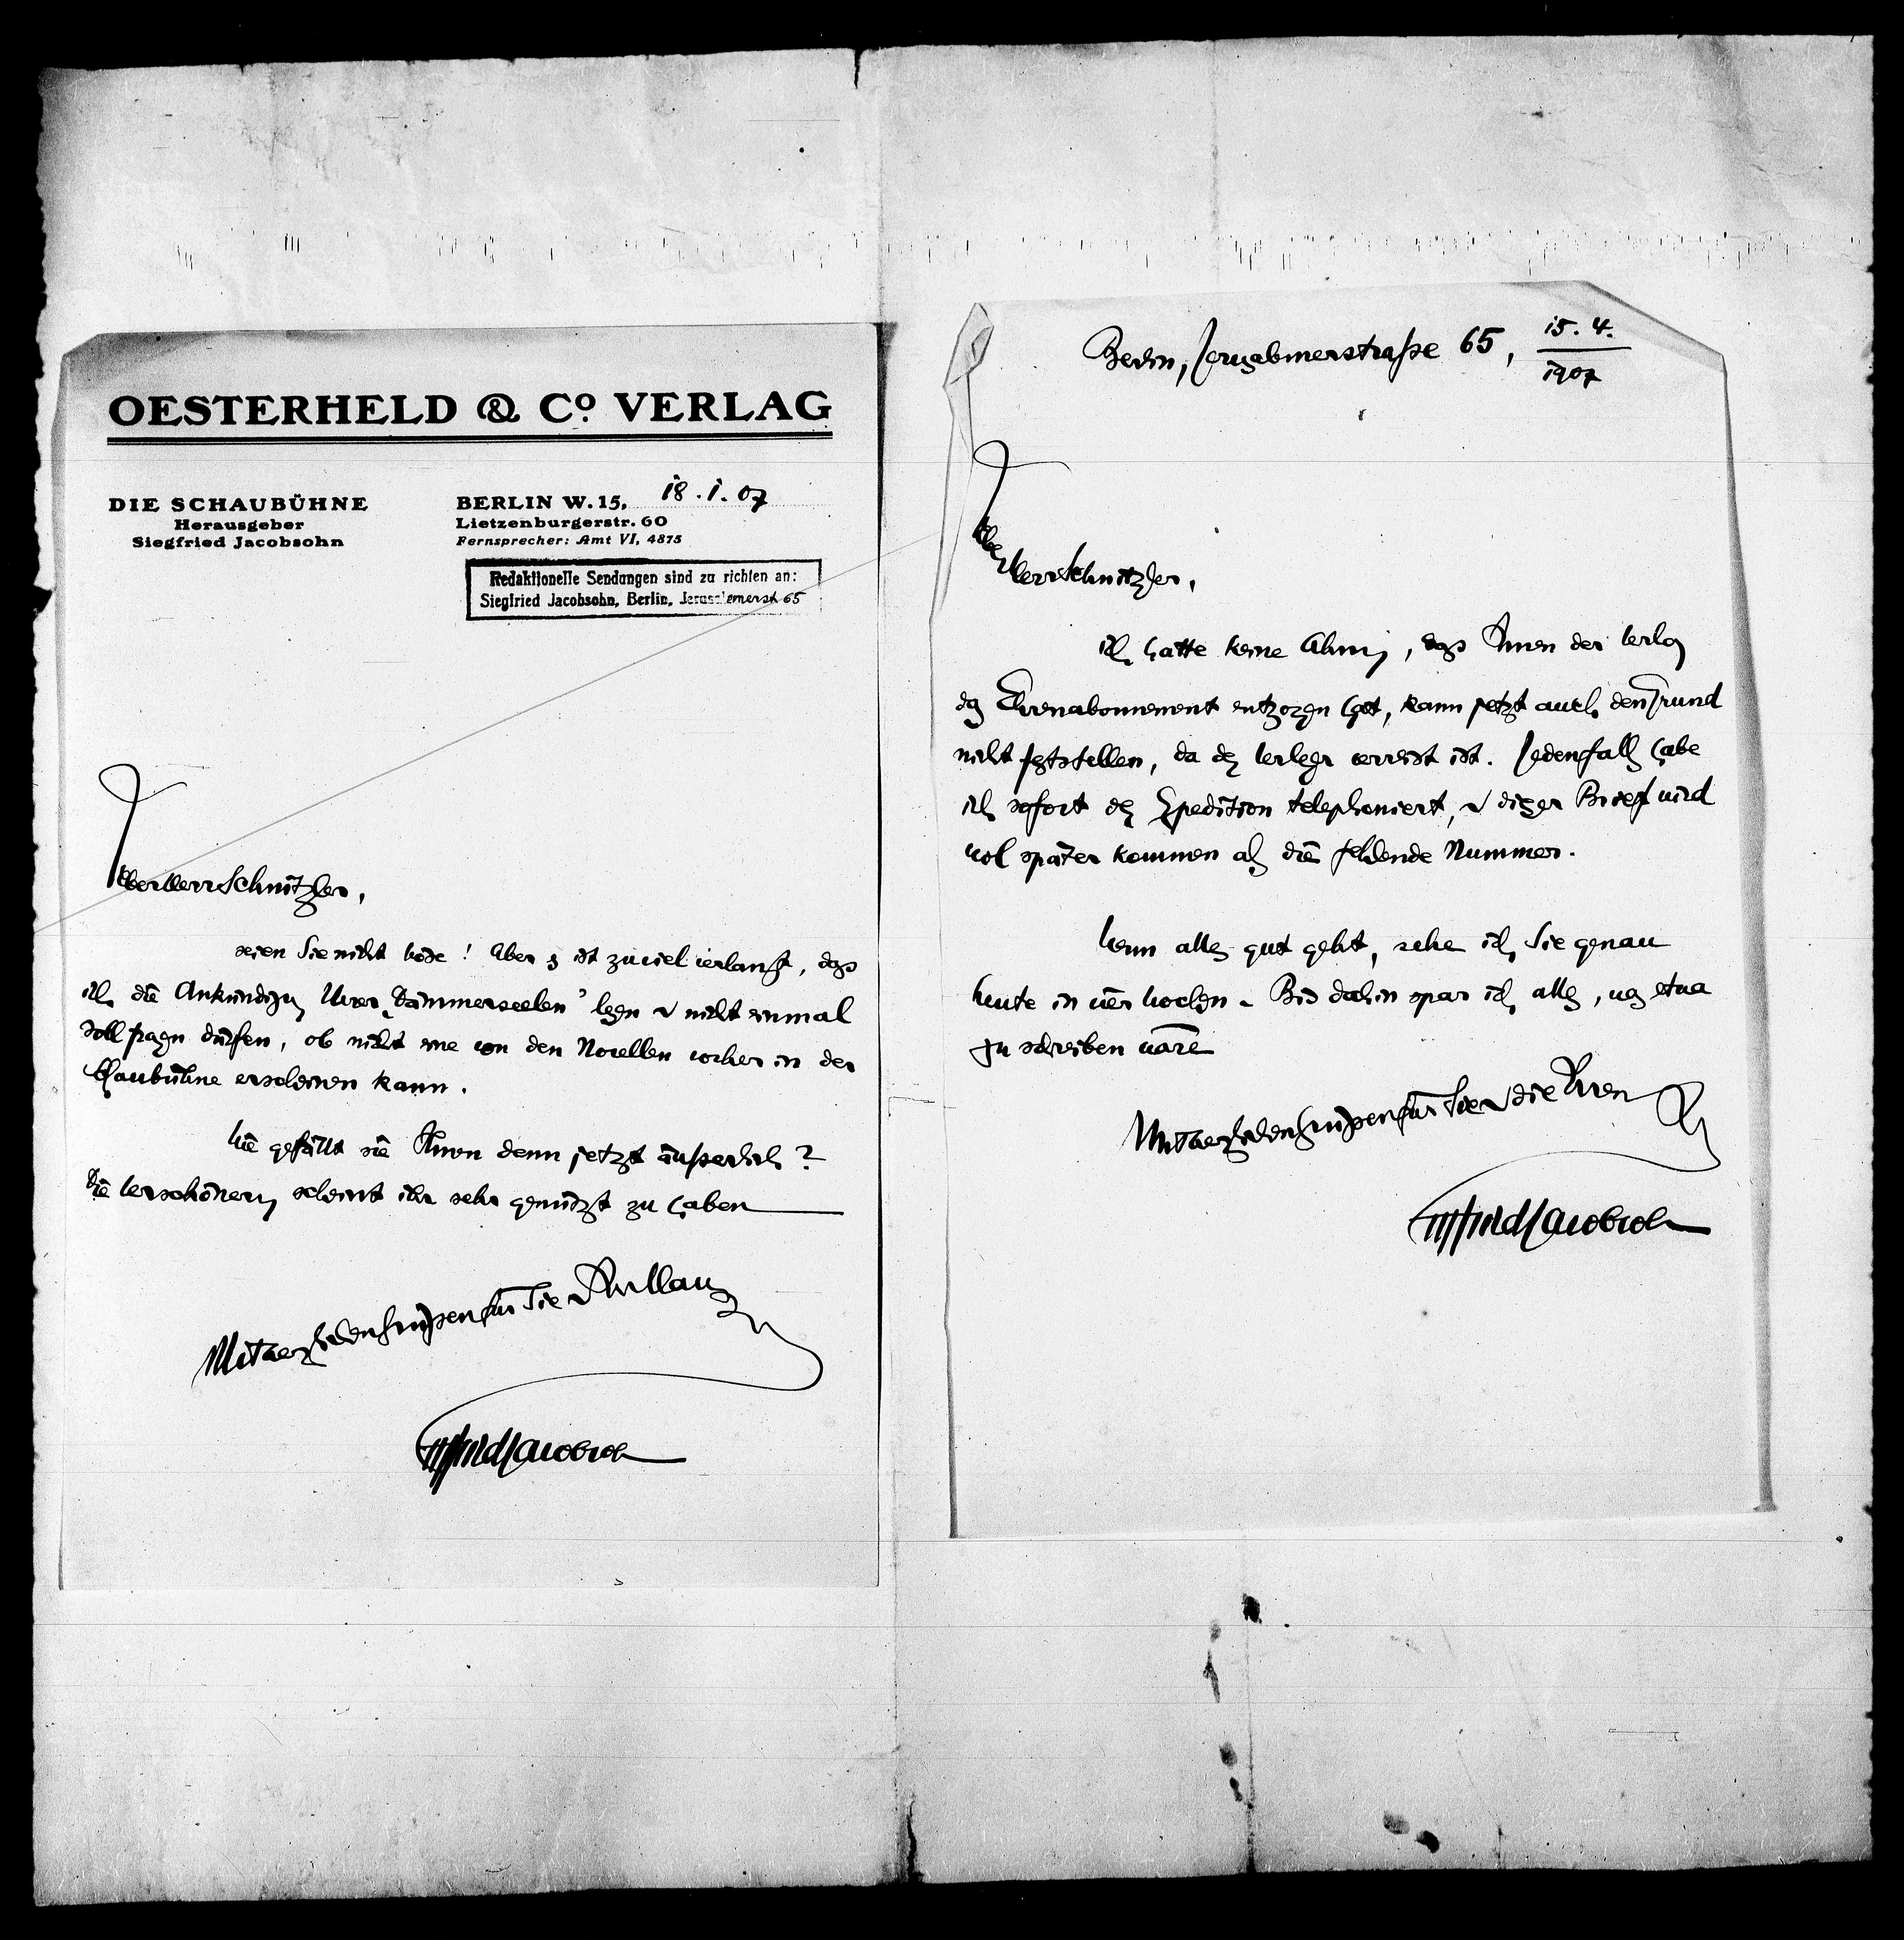 OESTERHELD & Co. VERLAG
DIE SCHAUBÜHNE
Herausgeber
Siegfried Jacobsohn
BERLIN W. 15, 18. 1. 07
Lietzenburgerstr. 60
Fernsprecher: Amt VI, 4875
Redaktionelle Sendungen sind zu richten an:
Siegfried Jacobsohn, Berlin, Jerusalemerst 65
Lieber Herr Schnitzler,
seien Sie nicht böse! Aber es ist zuviel verlangt, dass
ich die Ankündigung Ihrer „Dämmerseelen" lesen u nicht einmal
soll fragen dürfen, ob nicht eine von den Novellen vorher in der
Schaubühne erscheinen kann.
Wie gefällt sie Ihnen denn jetzt äußerlich?
Die Verschönerung scheint ihr sehr genützt zu haben
Mit herzlichen Grüßen für Sie u Ihr Haus
Ihr
Siegfried Jacobsohn
Berlin, Jerusalemerstraße 65, 15. 4. 1907
Lieber Herr Schnitzler,
ich hatte keine Ahnung, dass Ihnen der Verlag
das Ehrenabonnement entzogen hat, kann jetzt auch den Grund
nicht feststellen, da der Verleger verreist ist. Jedenfalls habe
ich sofort der Expedition telephoniert, u dieser Brief wird
wol später kommen als die fehlende Nummer.
Wenn alles gut geht, sehe ich Sie genau
heute in vier Wochen. Bis dahin spar ich alles, was etwa
zu schreiben wäre
Mit herzlichen Grüßen für Sie u die Ihren
Ihr
Siegfried Jacobsohn